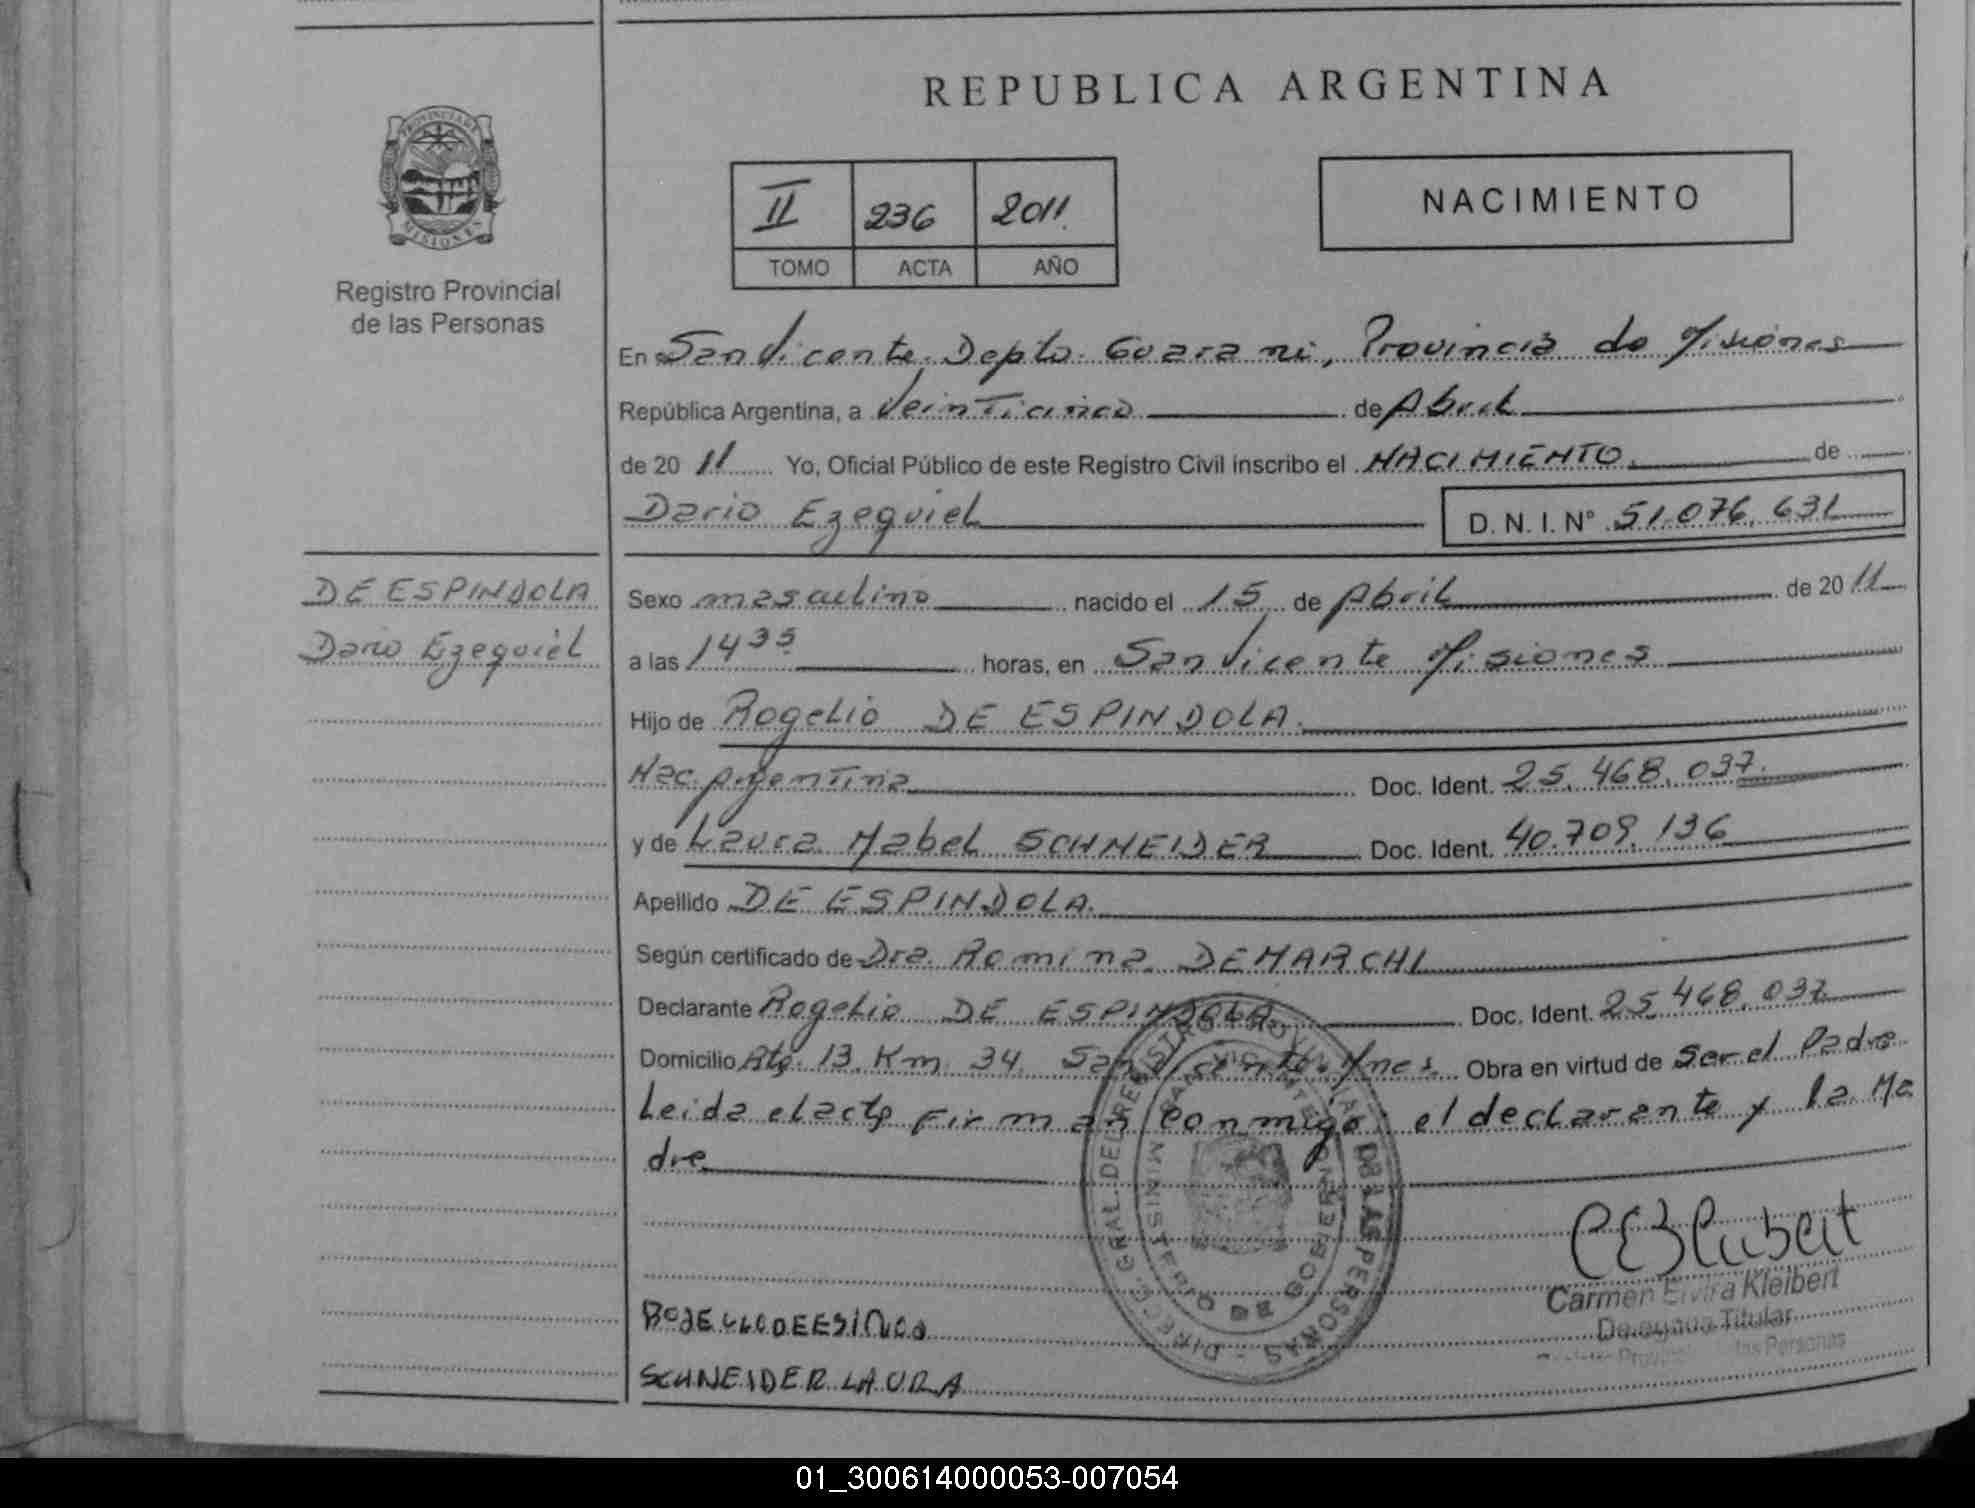 REPUBLICA ARGENTINA
PROVINCIA DE MISIONES
Registro Provincial
de las Personas
II 236 2011
TOMO ACTA AÑO
NACIMIENTO
En San Vicente Depto. Guarani, Provincia de Misiones
República Argentina, a Veinticinco de Abril
de 20 11 Yo, Oficial Público de este Registro Civil inscribo el NACIMIENTO de
Dario Ezequiel D. N. I. N° 51.076.631
DE ESPINDOLA
Dario Ezequiel
Sexo masculino nacido el 15 de Abril de 20 11
a las 14 35 horas, en San Vicente Misiones
Hijo de Rogelio DE ESPINDOLA.
Nac. Argentina Doc. Ident. 25.468.037.
y de Laura Mabel SCHNEIDER Doc. Ident. 40.709.136
Apellido DE ESPINDOLA.
Según certificado de Dra. Romina DEMARCHI
Declarante Rogelio DE ESPINDOLA Doc. Ident. 25.468.037
Domicilio Rta. 13 Km 34 San Vicente Mnes. Obra en virtud de Ser el Padre
Leida el acta firman conmigo: el declarante y la Ma
dre
DIREC. GRAL. DEL REGISTRO PROVINCIAL DE LAS PERSONAS
MINISTERIO DE GOBIERNO
SAN VICENTE
Carmen Elvira Kleibert
Delegada Titular
SCHNEIDER LAURA
01_300614000053-007054